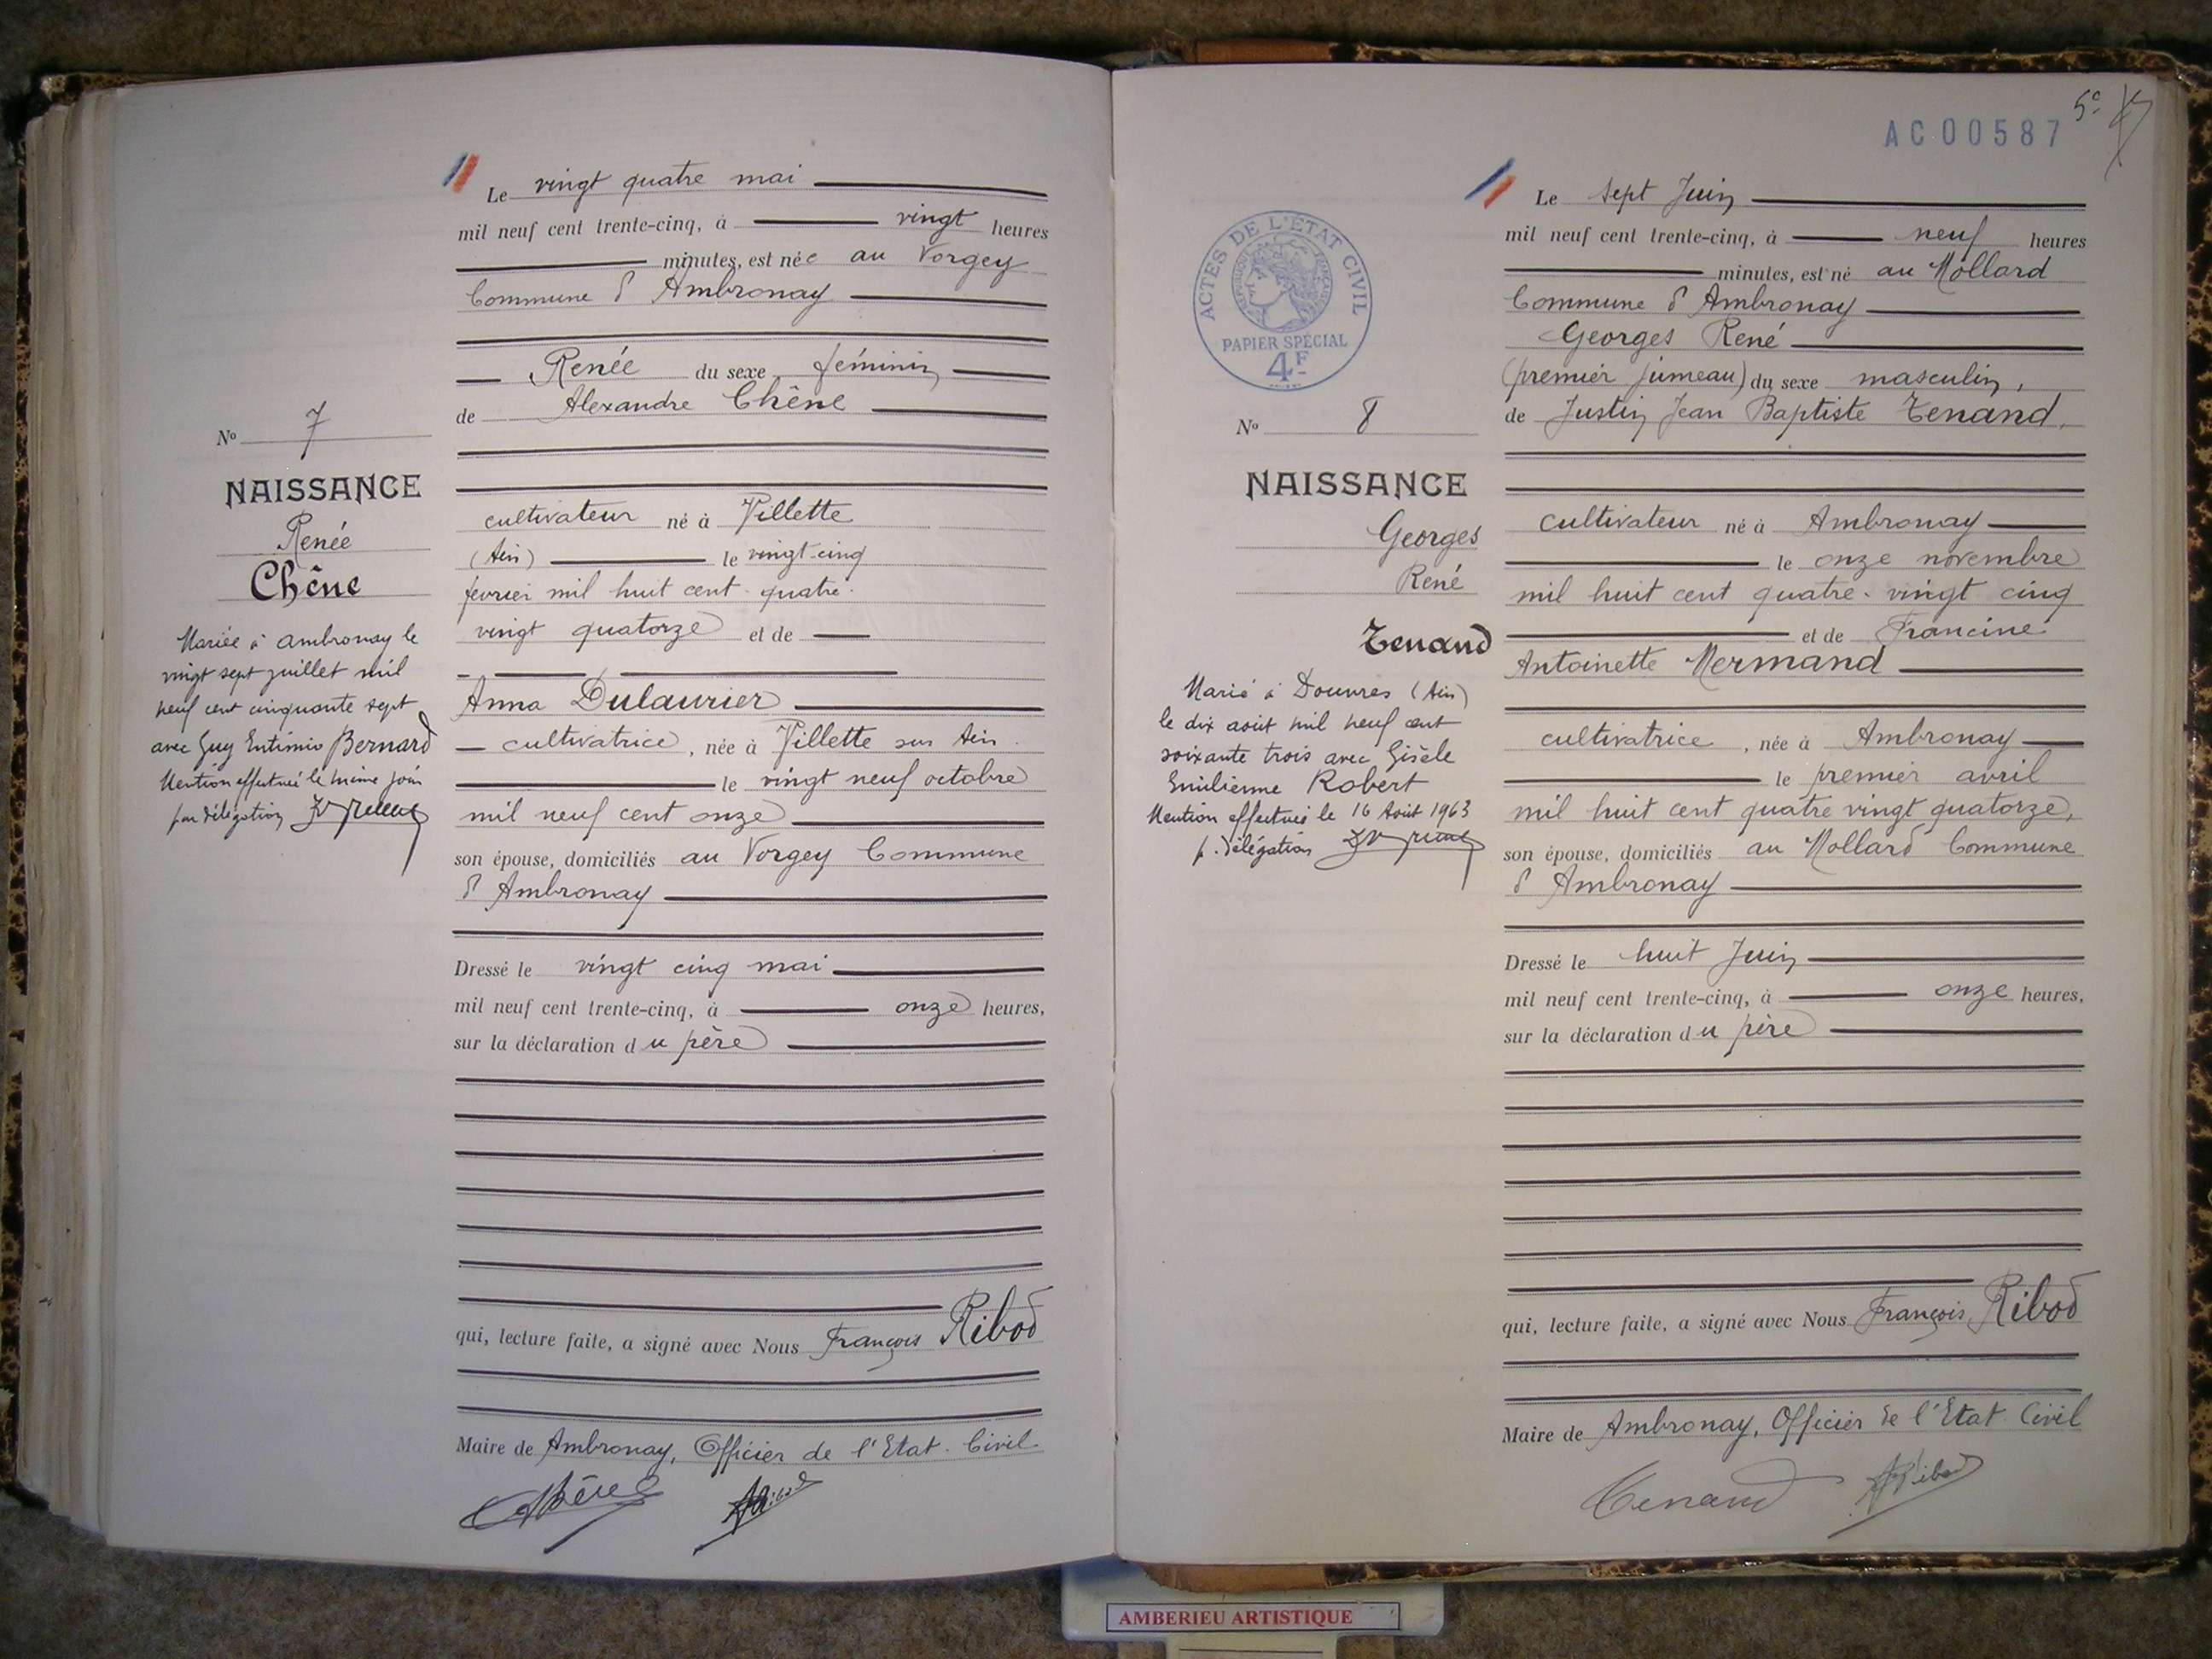 Le vingt quatre mai
mil neuf cent trente-cinq, à vingt heures
minutes, est née au Vorgey
Commune d'Ambronay
Renée du sexe féminin
de Alexandre Chêne
cultivateur né à Villette
(Ain) le vingt-cinq
février mil huit cent quatre-
vingt quatorze et de
Anna Dulaurier
cultivatrice, née à Villette sur Ain
le vingt neuf octobre
mil neuf cent onze
son épouse, domiciliés au Vorgey Commune
d'Ambronay
Dressé le vingt cinq mai
mil neuf cent trente-cinq, à onze heures,
sur la déclaration du père
qui, lecture faite, a signé avec Nous François Ribod
Maire de Ambronay, Officier de l'Etat-Civil
No 7
NAISSANCE
Renée
Chêne
Mariée à Ambronay le
vingt sept juillet mil
neuf cent cinquante sept
avec Guy Bernard
Mention effectuée le même jour
par délégation
AC00587
5e
Le sept Juin
mil neuf cent trente-cinq, à neuf heures
minutes, est né au Mollard
Commune d'Ambronay
Georges René
(premier jumeau) du sexe masculin,
de Justin Jean Baptiste Tenand,
cultivateur né à Ambronay
le onze novembre
mil huit cent quatre-vingt cinq
et de Francine
Antoinette Mermand
cultivatrice, née à Ambronay
le premier avril
mil huit cent quatre vingt quatorze,
son épouse, domiciliés au Mollard Commune
d'Ambronay
Dressé le huit Juin
mil neuf cent trente-cinq, à onze heures,
sur la déclaration du père
qui, lecture faite, a signé avec Nous François Ribod
Maire de Ambronay, Officier de l'Etat-Civil
Tenand ARibod
ACTES DE L'ÉTAT CIVIL
RÉPUBLIQUE FRANÇAISE
PAPIER SPÉCIAL
4F
No 8
NAISSANCE
Georges
René
Tenand
Marié à Douvres (Ain)
le dix août mil neuf cent
soixante trois avec Gisèle
Emilienne Robert
Mention effectuée le 16 Août 1963
p. délégation
AMBERIEU ARTISTIQUE